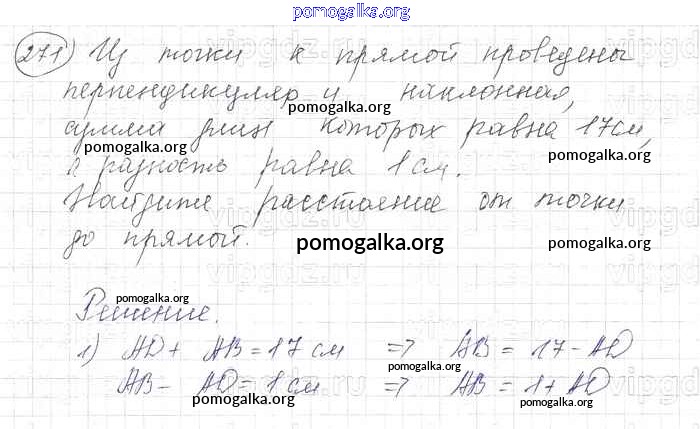 pomogalka.org
271) Из точки к прямой проведены
перпендикуляр и наклонная,
pomogalka.org
сумма длин которых равна 17 см,
pomogalka.org pomogalka.org
а разность равна 1 см.
Найдите расстояние от точки
до прямой.
pomogalka.org pomogalka.org
Решение.
pomogalka.org
1) AD + AB = 17 см => AB = 17 - AD
pomogalka.org
AB - AD = 1 см => AB = 1 + AD
pomogalka.org pomogalka.org